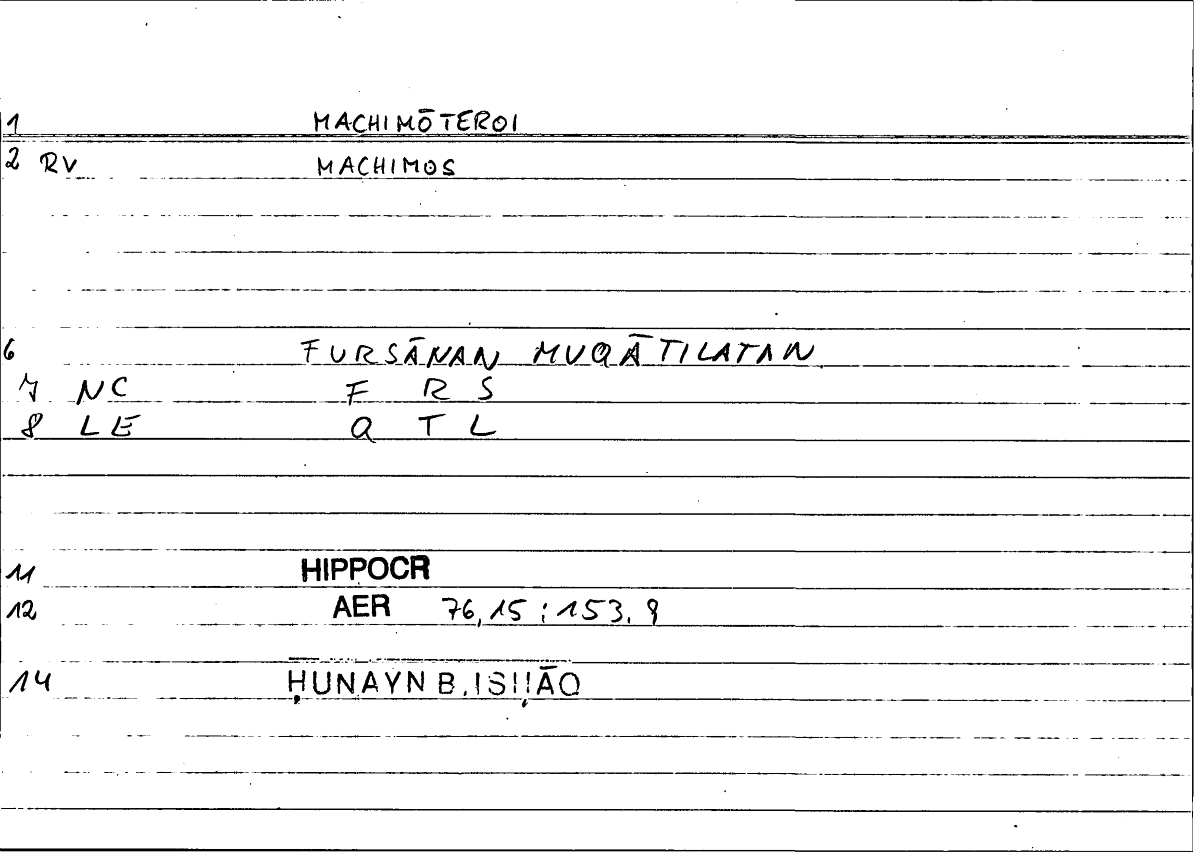 1 MACHIMŌTEROI
2 RV MACHIMOS
6 FURSĀNAN MUQĀTILATAN
7 NC F R S
8 LE Q T L
11 HIPPOCR
12 AER 76,15 ; 153.9
14 ḤUNAYN B. ISḤĀQ